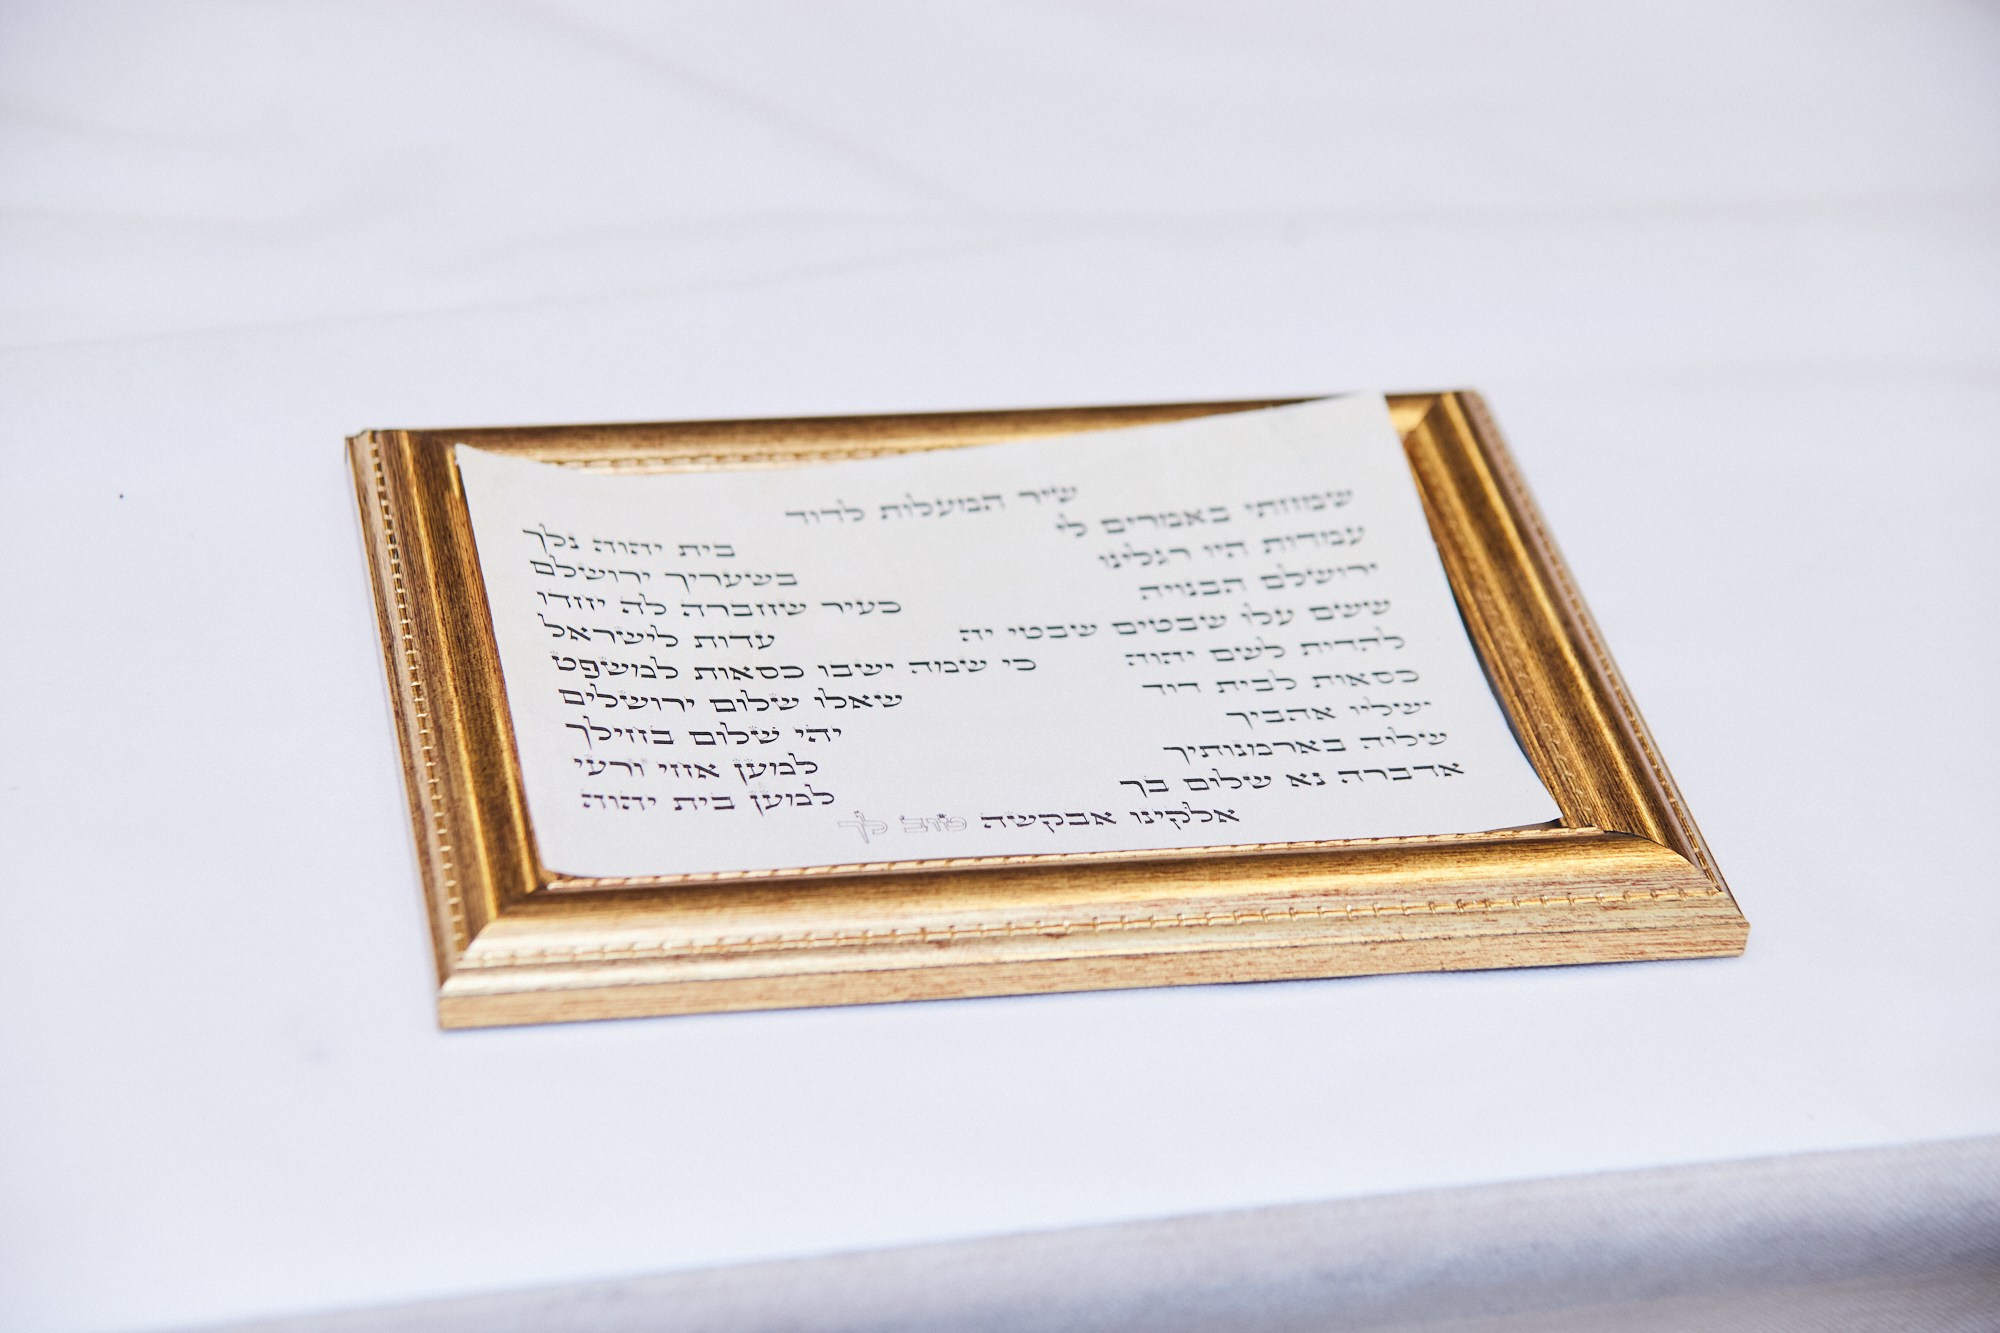 שיר המעלות לדוד
שמחתי באמרים לי בית יהוה נלך
עמדות היו רגלינו בשעריך ירושלם
ירושלם הבנויה כעיר שחברה לה יחדו
ששם עלו שבטים שבטי יה עדות לישראל
להדות לשם יהוה כי שמה ישבו כסאות למשפט
כסאות לבית דוד שאלו שלום ירושלים
ישליו אהביך יהי שלום בחילך
שלוה בארמנותיך למען אחי ורעי
אדברה נא שלום בך למען בית יהוה
אלקינו אבקשה טוב לך